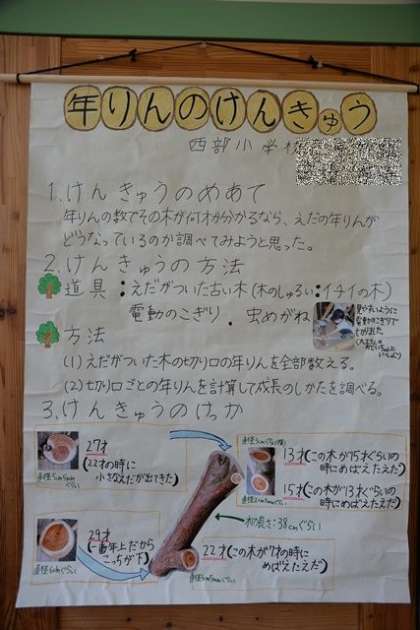 年りんのけんきゅう
西部小学校
1.けんきゅうのめあて
年りんの数でその木が何才か分かるなら、えだの年りんが
どうなっているのか調べてみようと思った。
2.けんきゅうの方法
道具:えだがついた古い木(木のしゅるい:イチイの木)
電動のこぎり・虫めがね
見やすいように
電動のこぎりで
方法
(1)えだがついた木の切り口の年りんを全部数える。
(2)切り口ごとの年りんを計算して成長のしかたを調べる。
3.けんきゅうのけっか
27才
(22才の時に
小さなえだが出てきた)
直径5cm5mmぐらい
13才(この木が15才ぐらいの
時にめばえたえだ)
15才(この木が13才ぐらいの
時にめばえたえだ)
木の長さ:38cmぐらい
29才
(一番年上だから
こっちが下)
直径6cmぐらい
22才(この木が7才の時に
めばえたえだ)